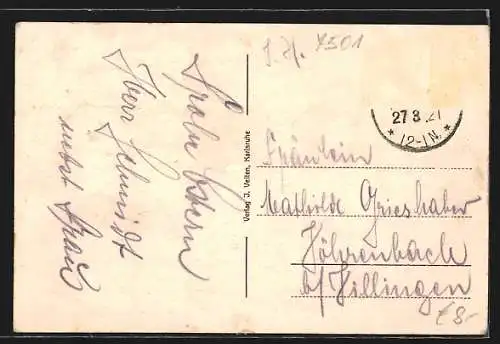 Frohe Ostern
Herr Schmidt
nebst Frau
Verlag J. Velten, Karlsruhe
27 3 21
* 12-1N. *
Fräulein
Mathilde Grieshaber
Vöhrenbach
b/ Villingen